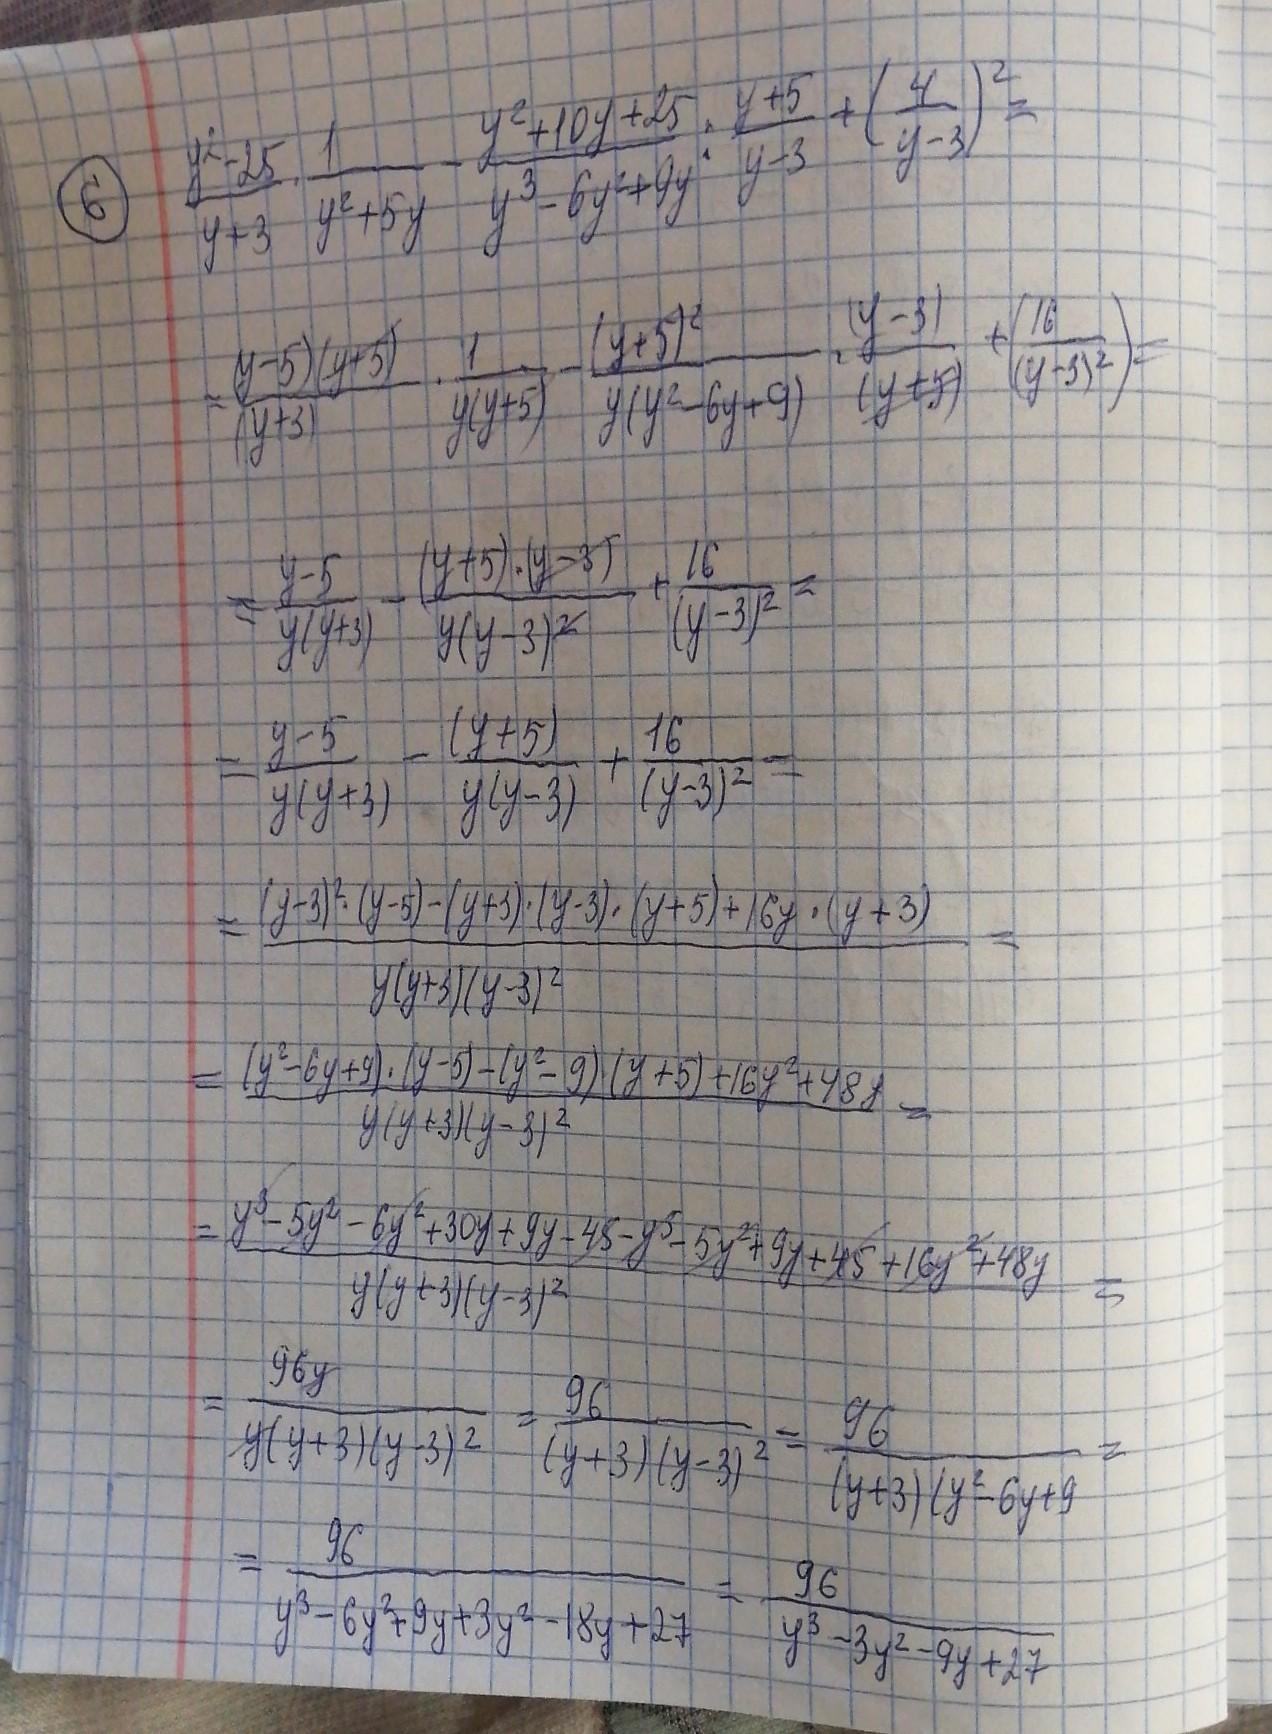 6) (y²-25)/(y+3) · 1/(y²+5y) - (y²+10y+25)/(y³-6y²+9y) : (y+5)/(y-3) + (4/(y-3))² =
= (y-5)(y+5)/(y+3) · 1/(y(y+5)) - (y+5)²/(y(y²-6y+9)) · (y-3)/(y+5) + (16/(y-3)²) =
= (y-5)/(y(y+3)) - (y+5)·(y-3)/(y(y-3)²) + 16/(y-3)² =
= (y-5)/(y(y+3)) - (y+5)/(y(y-3)) + 16/(y-3)² =
= ((y-3)²·(y-5)-(y+3)·(y-3)·(y+5)+16y·(y+3))/(y(y+3)(y-3)²) =
= ((y²-6y+9)·(y-5)-(y²-9)·(y+5)+16y²+48y)/(y(y+3)(y-3)²) =
= (y³-5y²-6y²+30y+9y-45-y³-5y²+9y+45+16y²+48y)/(y(y+3)(y-3)²) =
= 96y/(y(y+3)(y-3)²) = 96/((y+3)(y-3)²) = 96/((y+3)(y²-6y+9 =
= 96/(y³-6y²+9y+3y²-18y+27) = 96/(y³-3y²-9y+27)